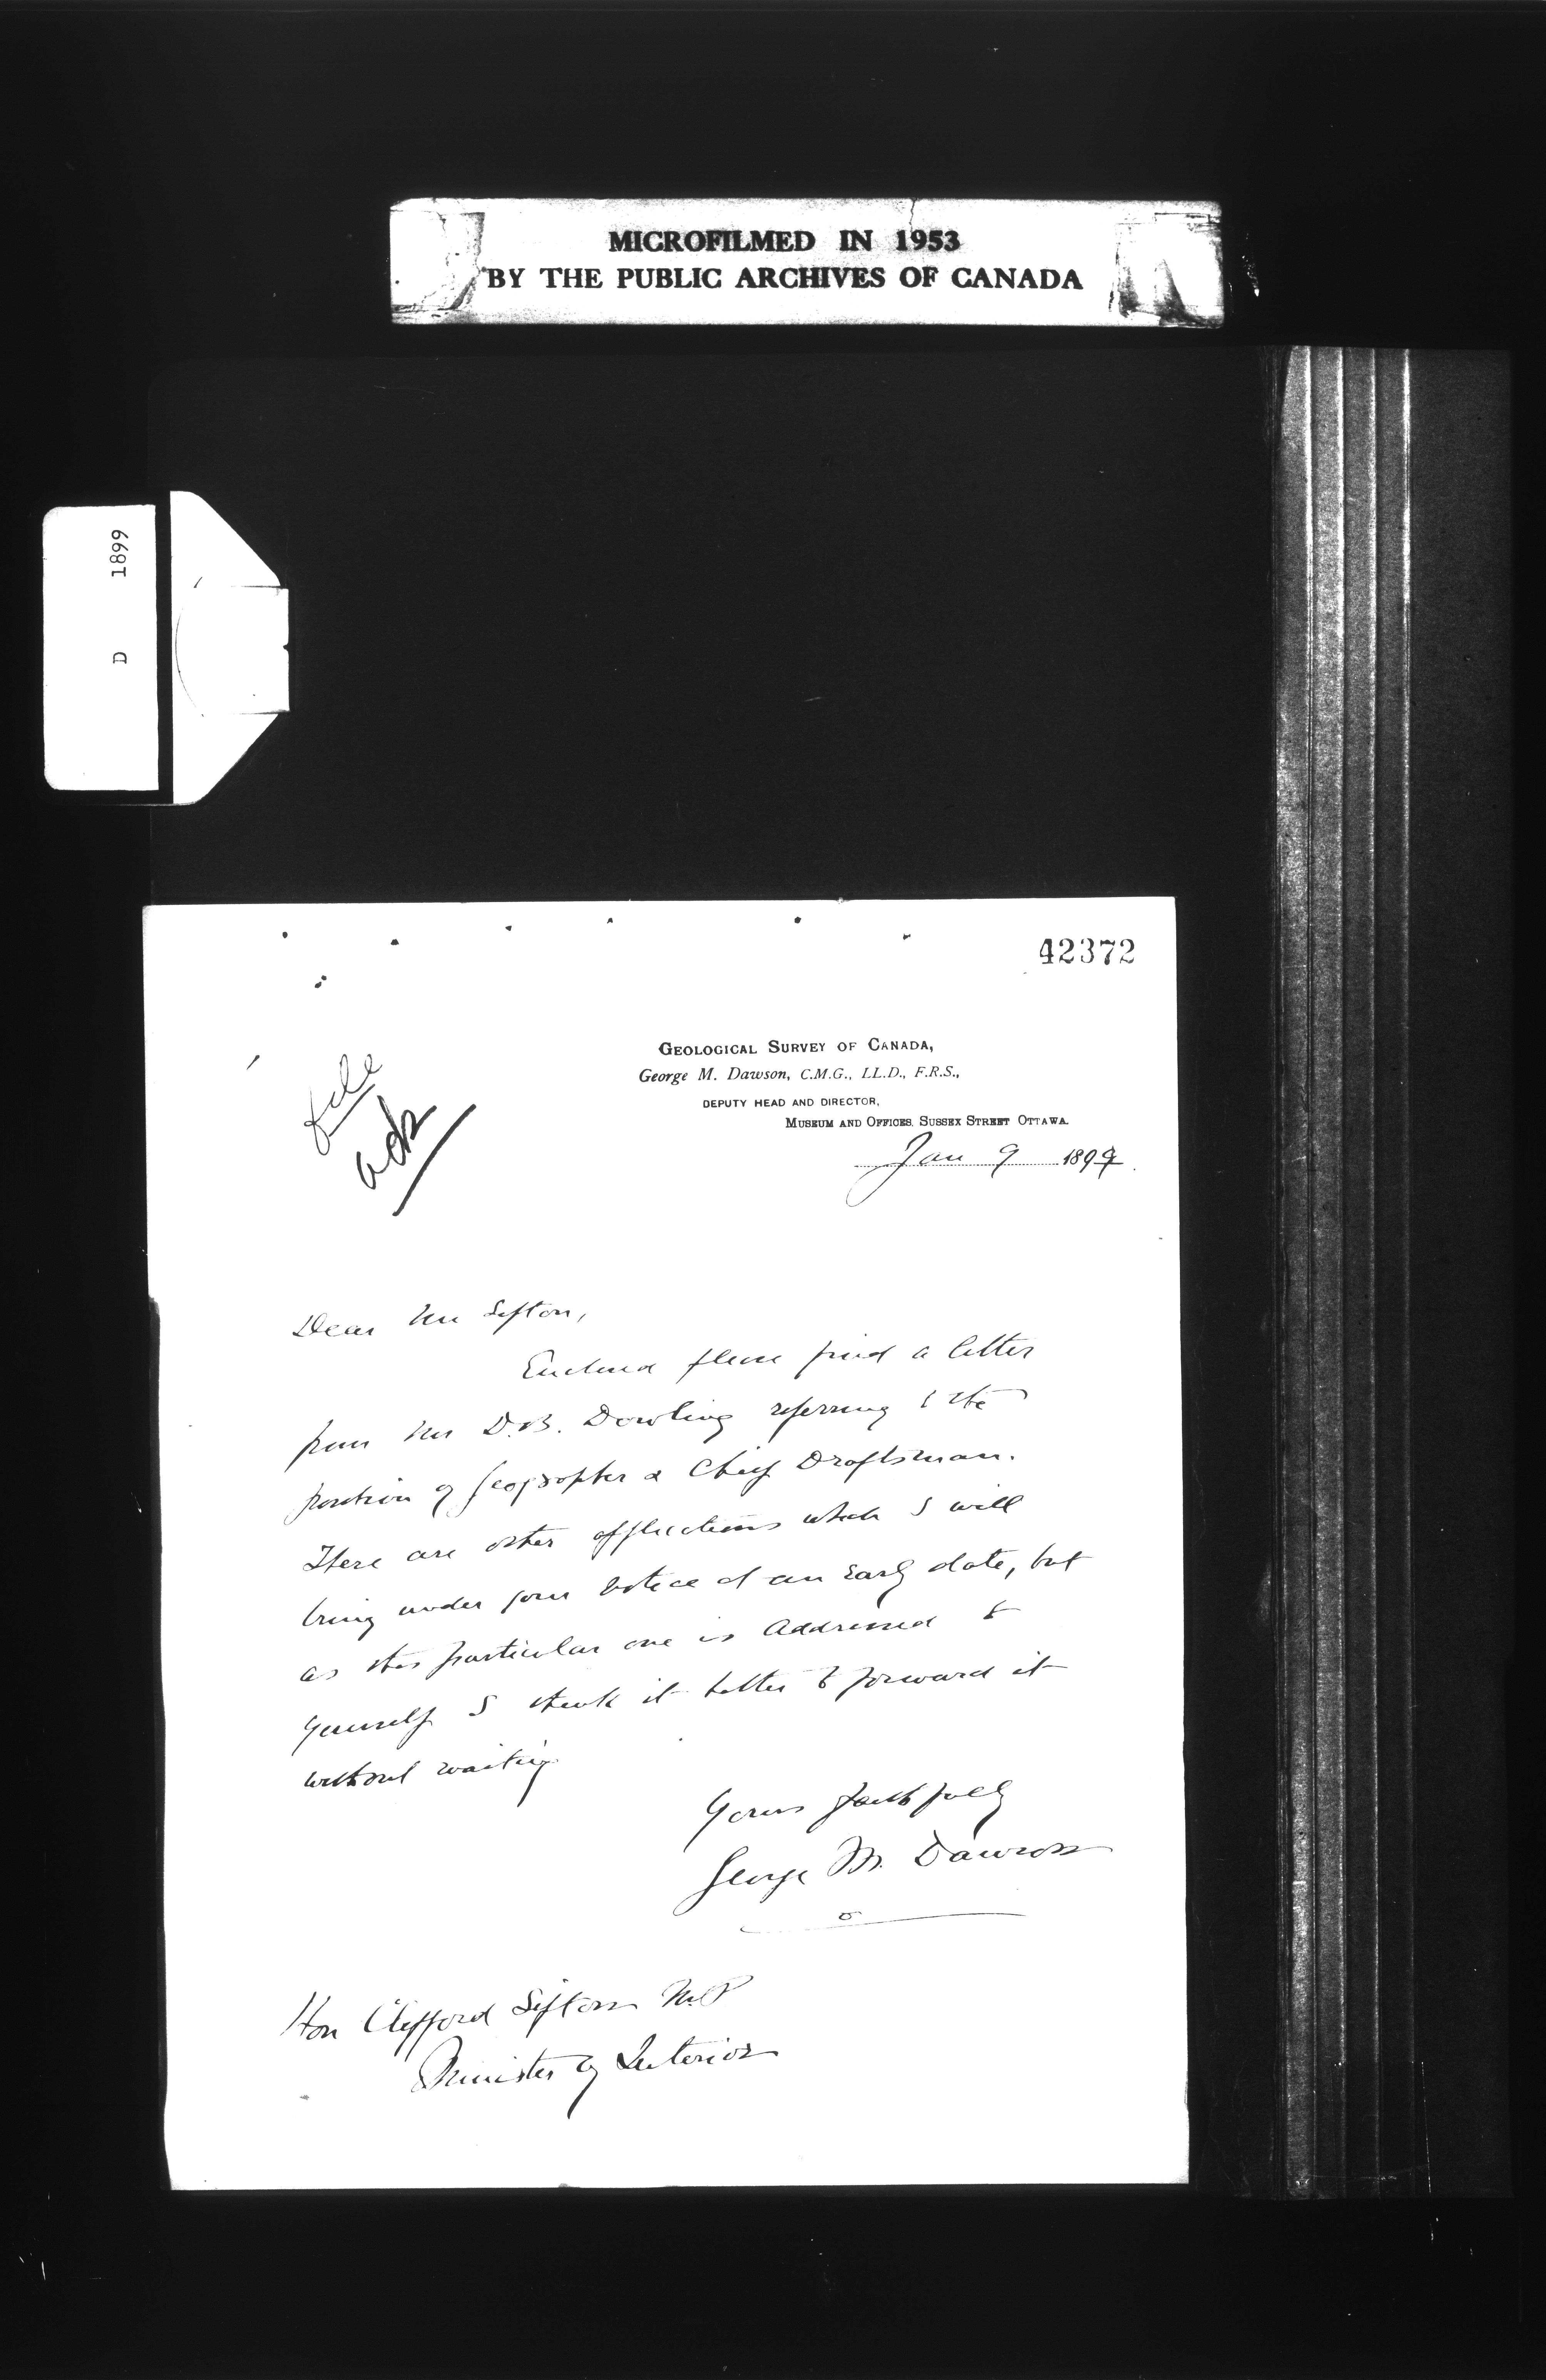 MICROFILMED IN 1953
BY THE PUBLIC ARCHIVES OF CANADA
D 1899
42372
GEOLOGICAL SURVEY OF CANADA,
George M. Dawson, C.M.G., LL.D., F.R.S.,
DEPUTY HEAD AND DIRECTOR,
MUSEUM AND OFFICES, SUSSEX STREET OTTAWA.
Jan 9 1899
file
ack
Dear Mr Sifton,
Enclosed please find a letter
from Mr D.B. Dowling referring to the
position of Geographer & Chief Draftsman.
There are other applications which I will
bring under your notice at an early date, but
as this particular one is addressed to
yourself I think it better to forward it
without waiting
Yours faithfully
George M. Dawson
Hon Clifford Sifton M.P
Minister of Interior